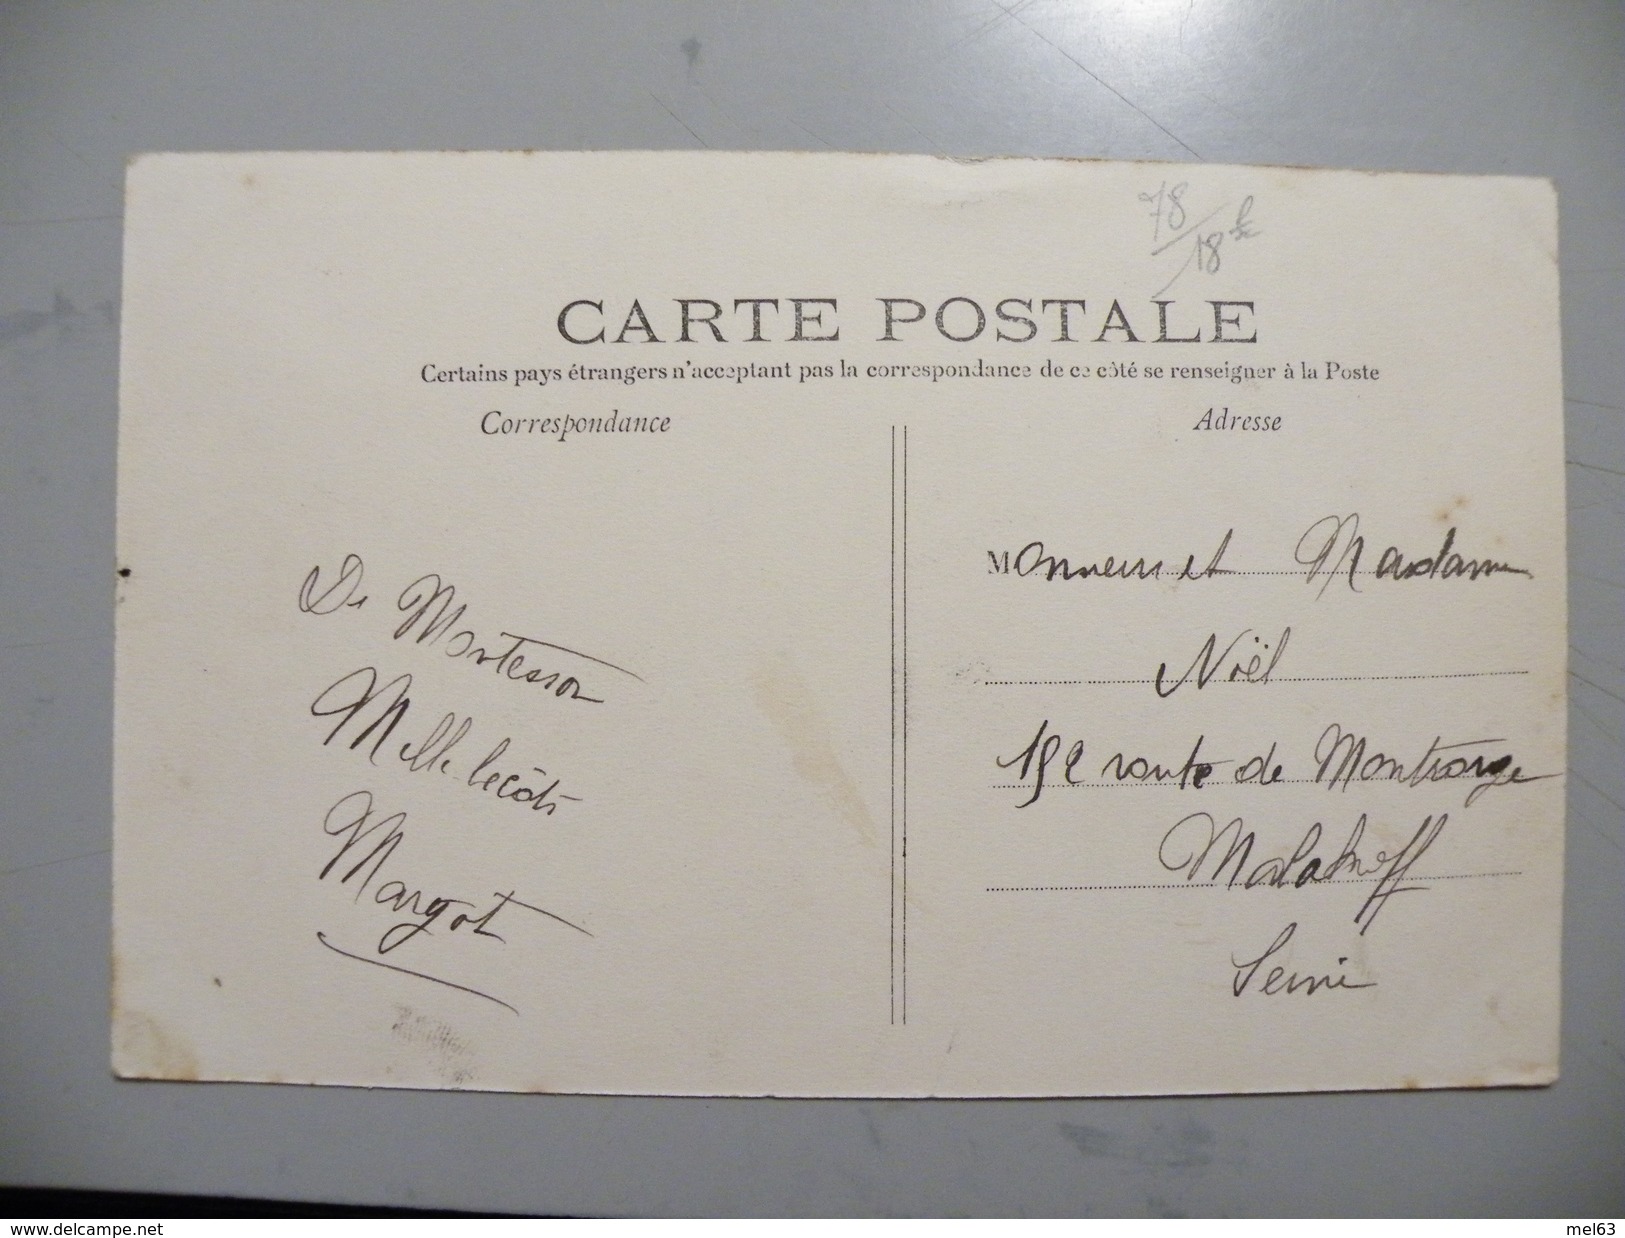 78
18 fr
CARTE POSTALE
Certains pays étrangers n'acceptant pas la correspondance de ce côté se renseigner à la Poste
Correspondance
Adresse
De Montesson
Mille bécots
Margot
Monsieur et Madame
Noël
152 route de Montrouge
Malakoff
Seine
www.delcampe.net
mel63